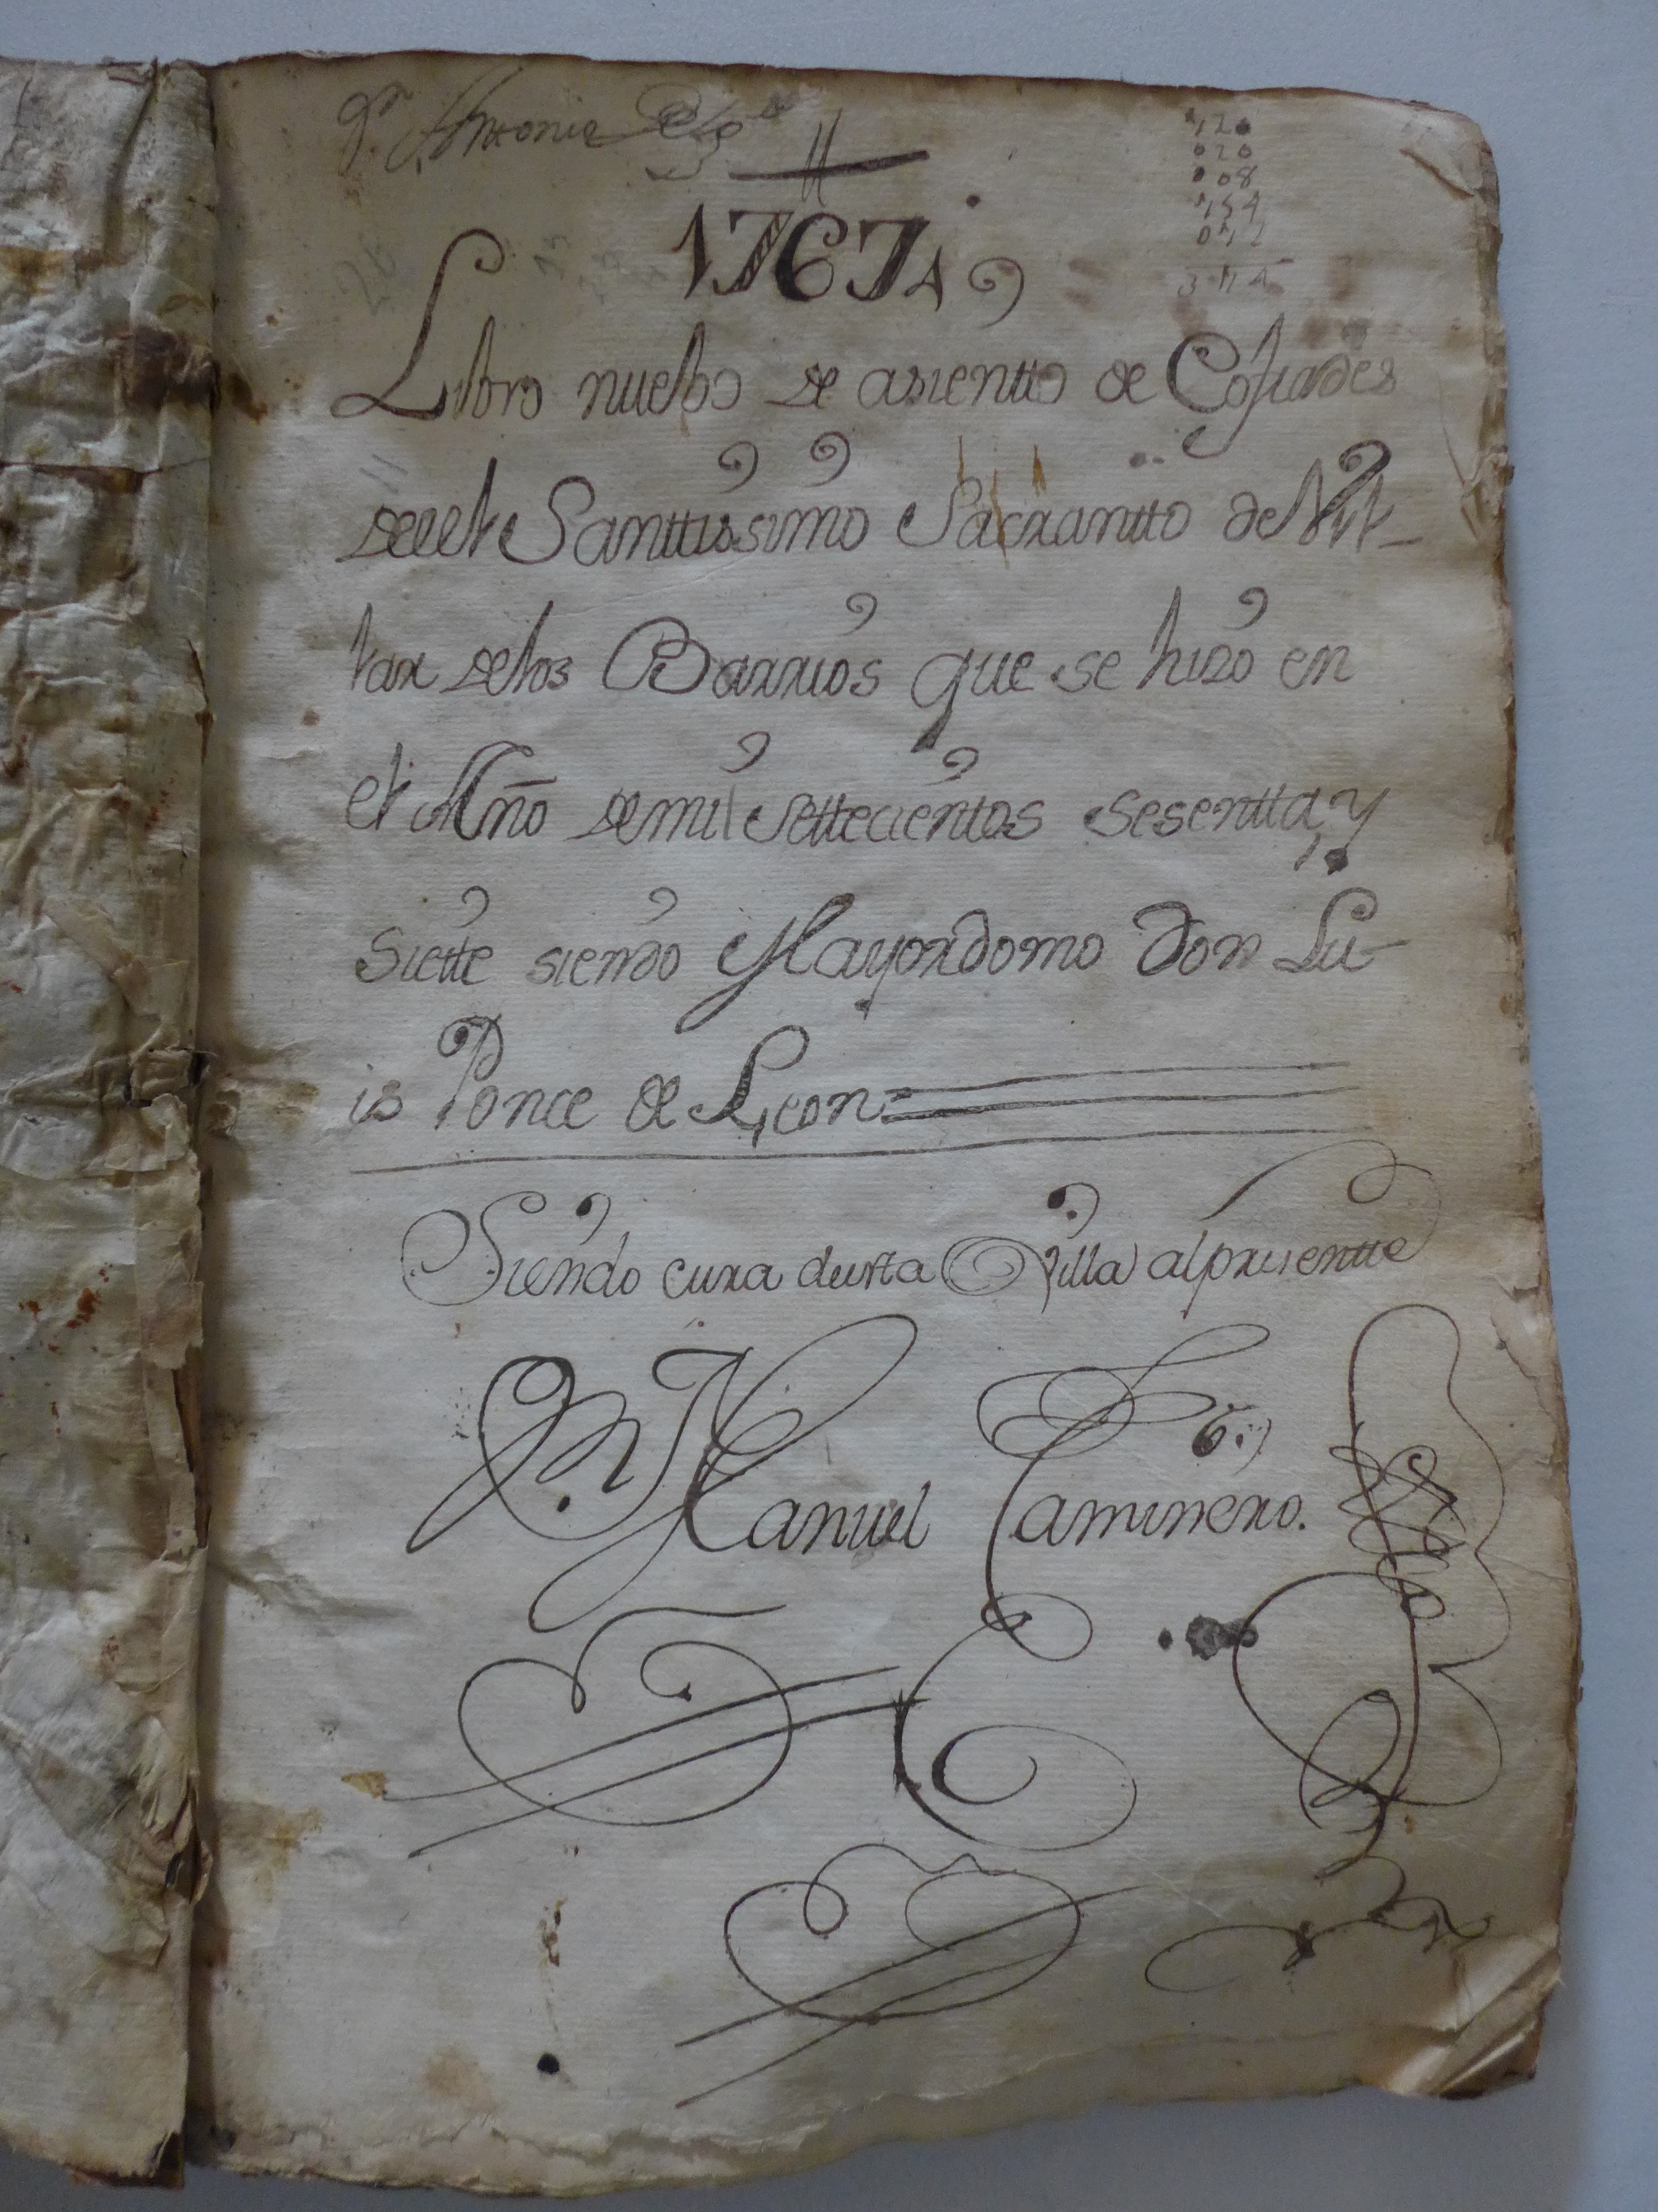 Dn Antonio
120
020
08
154
042
1767 A
Libro nuebo de asientto de Cofrades
de el Santtissimo Sacramtto de Vil-
lar de los Barrios que se hizo en
el Año de mil Settecientos Sesentta y
Siette siendo Mayordomo Don Lu-
is Ponce de Leon =
Siendo cura de esta Villa al presentte
Dn Manuel Caminero.